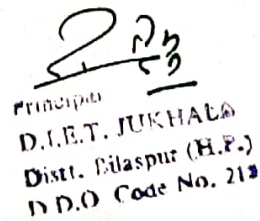 Principal
D.I.E.T. JUKHALA
Distt. Bilaspur (H.P.)
D.D.O Code No. 212